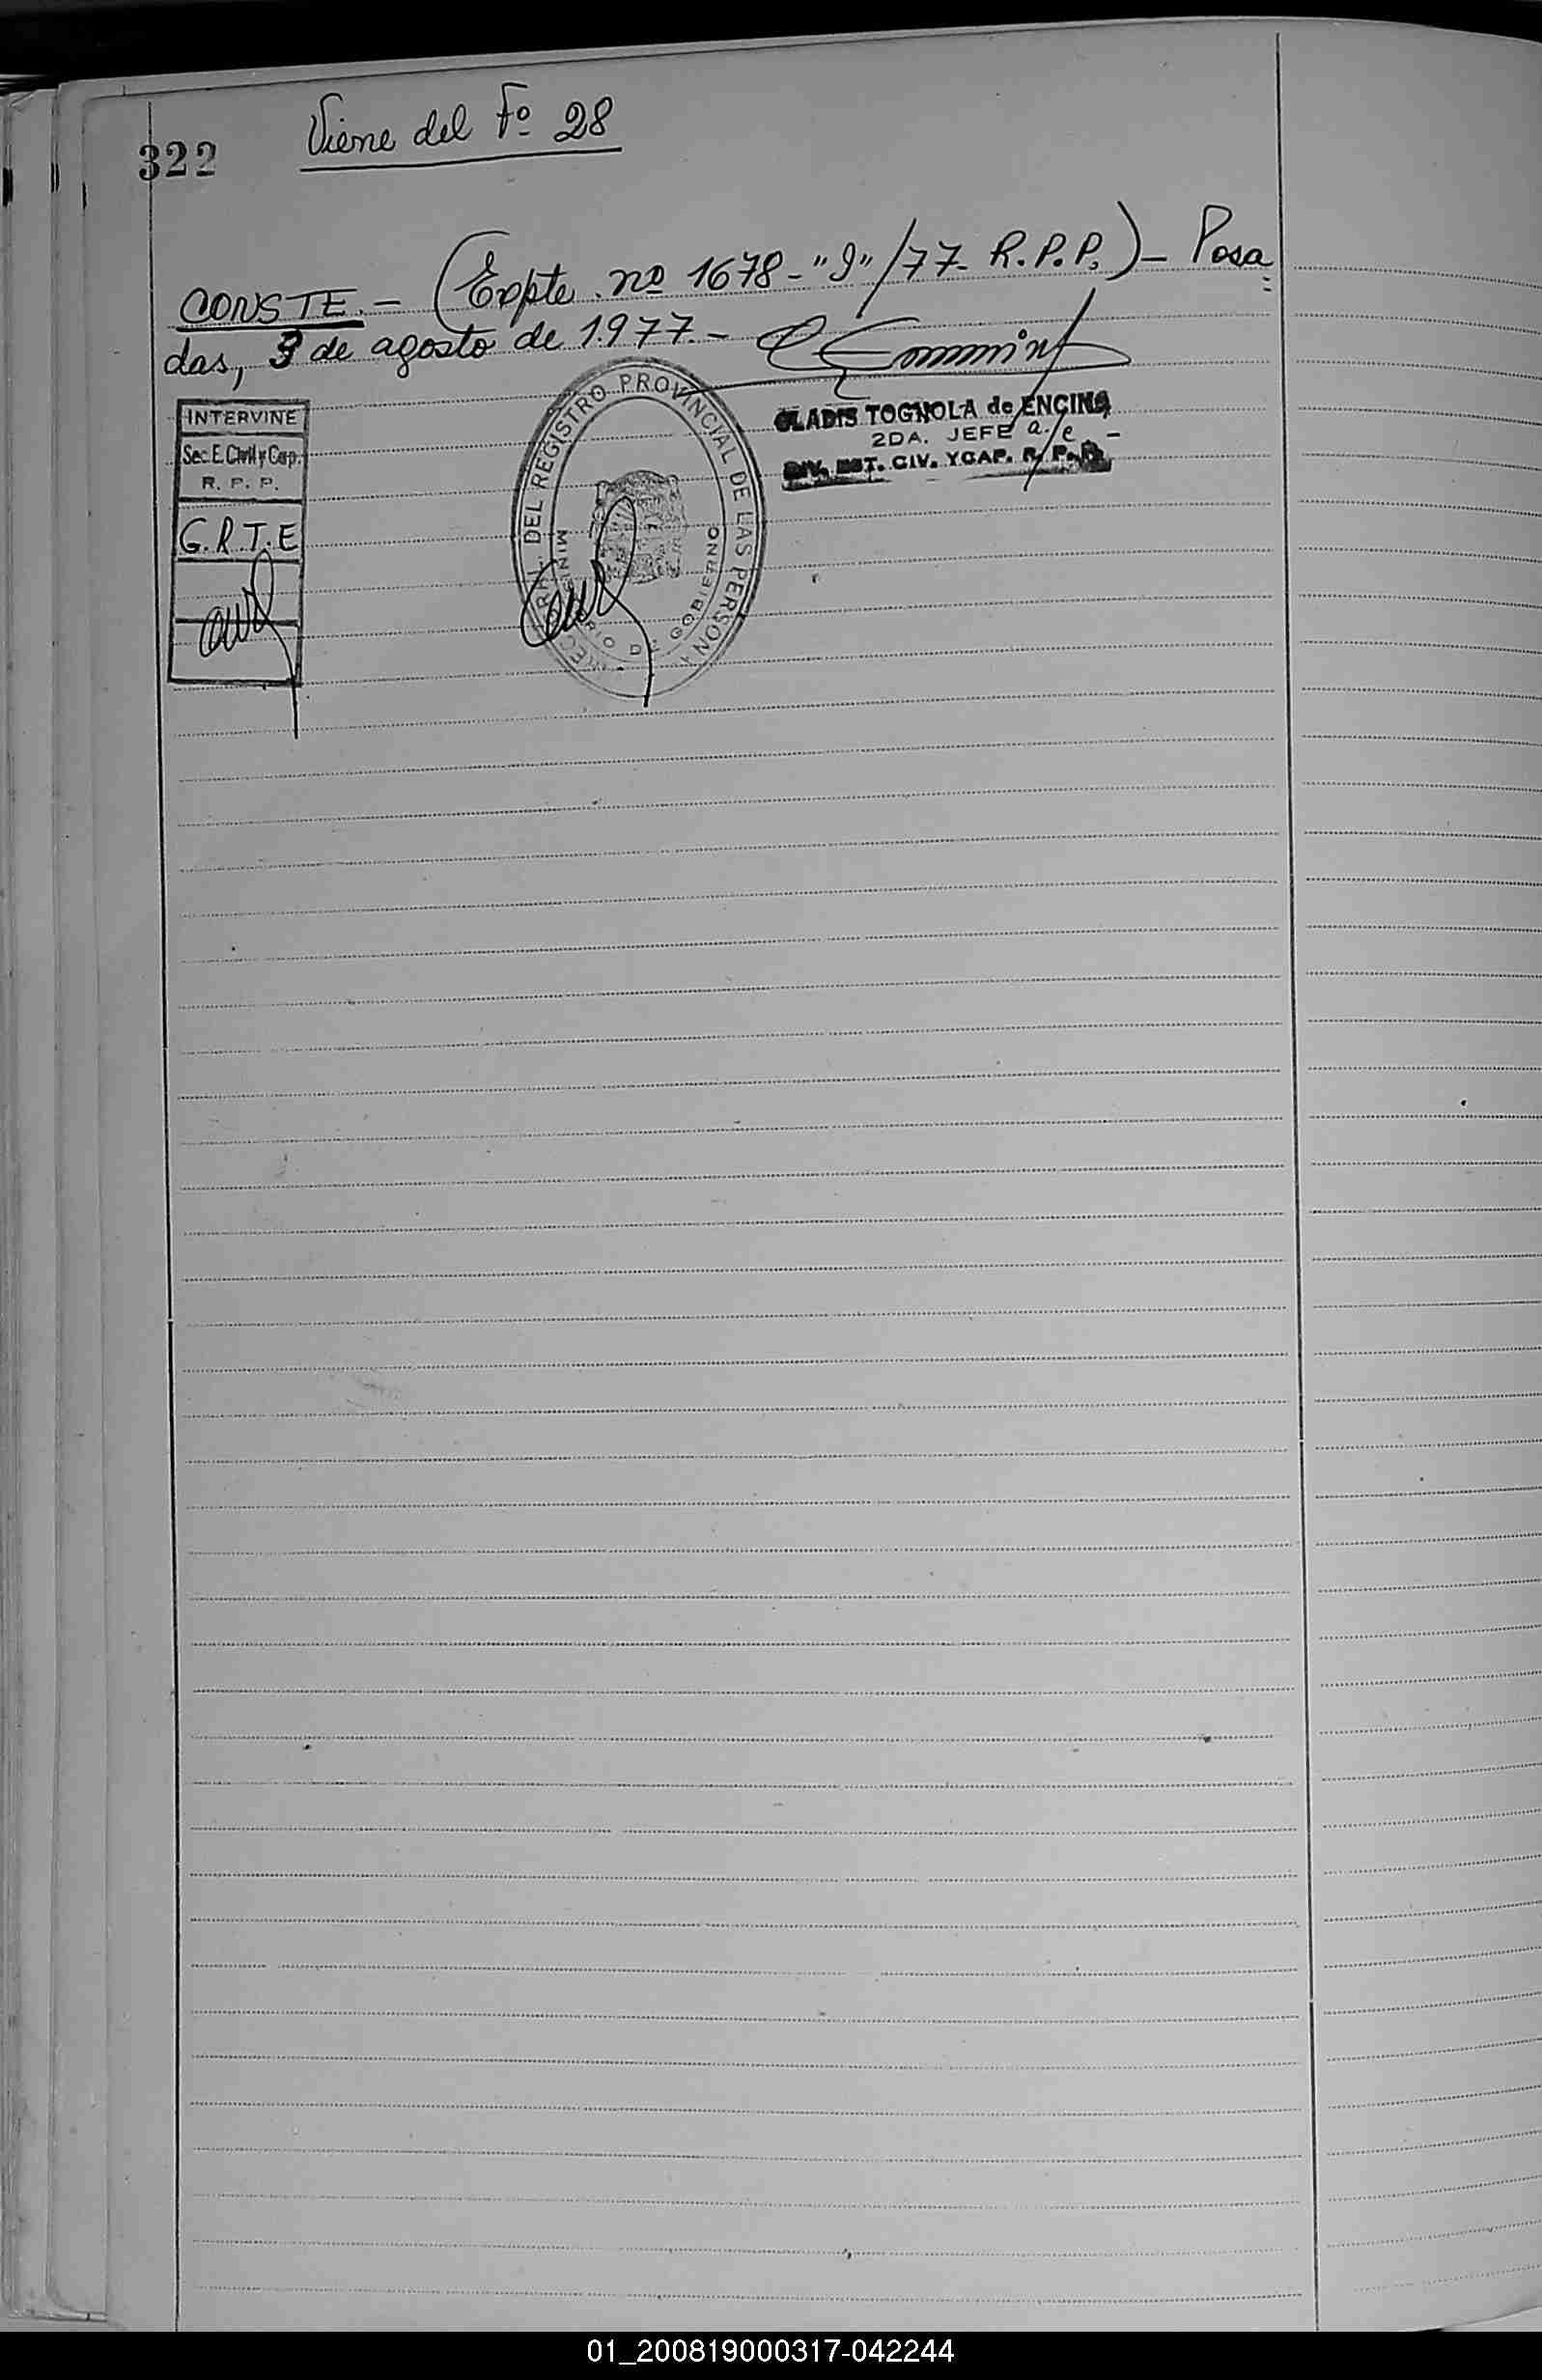 322
Viene del Fº 28
CONSTE.- (Expte. nº 1678-"I"/77- R.P.P.)- Posa=
das, 3 de agosto de 1.977.-
INTERVINE
Sec. E. Civil y Cap.
R. P. P.
G.R.T.E
DEL REGISTRO PROVINCIAL DE LAS PERSONA
MINISTERIO DE GOBIERNO
GLADIS TOGNOLA de ENCINA
2DA. JEFE a/c -
DIV. EST. CIV. Y CAP. R. P. P.
01_200819000317-042244